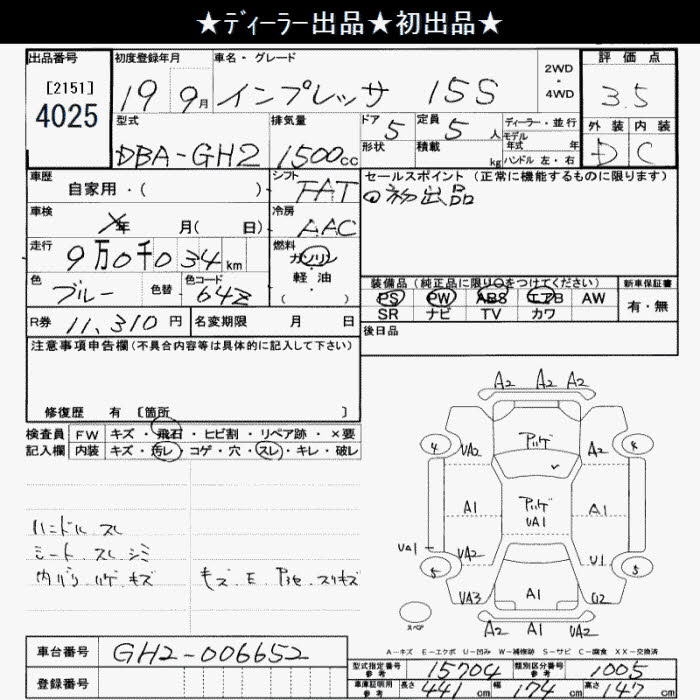 ★ディーラー出品★初出品★
出品番号 初度登録年月 車名・グレード 2WD・4WD 評価点
[2151]
4025
19 9月 インプレッサ 15S 3.5
型式 排気量 ドア 定員 ディーラー・並行 外装 内装
DBA-GH2 1500cc 5 5人 モデル年式 年 D C
形状 積載 kg ハンドル 左・右
車歴 シフト セールスポイント (正常に機能するものに限ります)
自家用・( ) FAT ◎初出品
車検 冷房
年 月( 日) AAC
走行 燃料
9万0千034km ガソリン
軽・油
( )
色 色替 色コード 装備品 (純正品に限り○をつけてください) 新車保証書
ブルー 64Z PS PW ABS エアB AW 有・無
SR ナビ TV カワ
R券 11,310円 名変期限 月 日 後日品
注意事項申告欄(不具合内容等は具体的に記入して下さい)
修復歴 有 [箇所 ]
検査員 FW キズ・飛石・ヒビ割・リペア跡・×要
記入欄 内装 キズ・汚レ・コゲ・穴・スレ・キレ・破レ
ハンドル スレ
シート スレ シミ
内バリ ハゲ キズ
キズ.E.
A2 A2 A2
4 VA2 アハゲ A2
A1 アハゲ UA1 A1
UA1 VA2 U1
5 5
VA3 A1 U2
スペア
A2 A1 UA2
A-キズ E-エクボ U-凹み W-補修跡 S-サビ C-腐食 XX-交換済
車台番号 GH2-006652
登録番号
型式指定番号 参考 15704 類別区分番号 参考 1005
車庫証明用 参考 長さ 441cm 幅 174cm 高さ 147cm